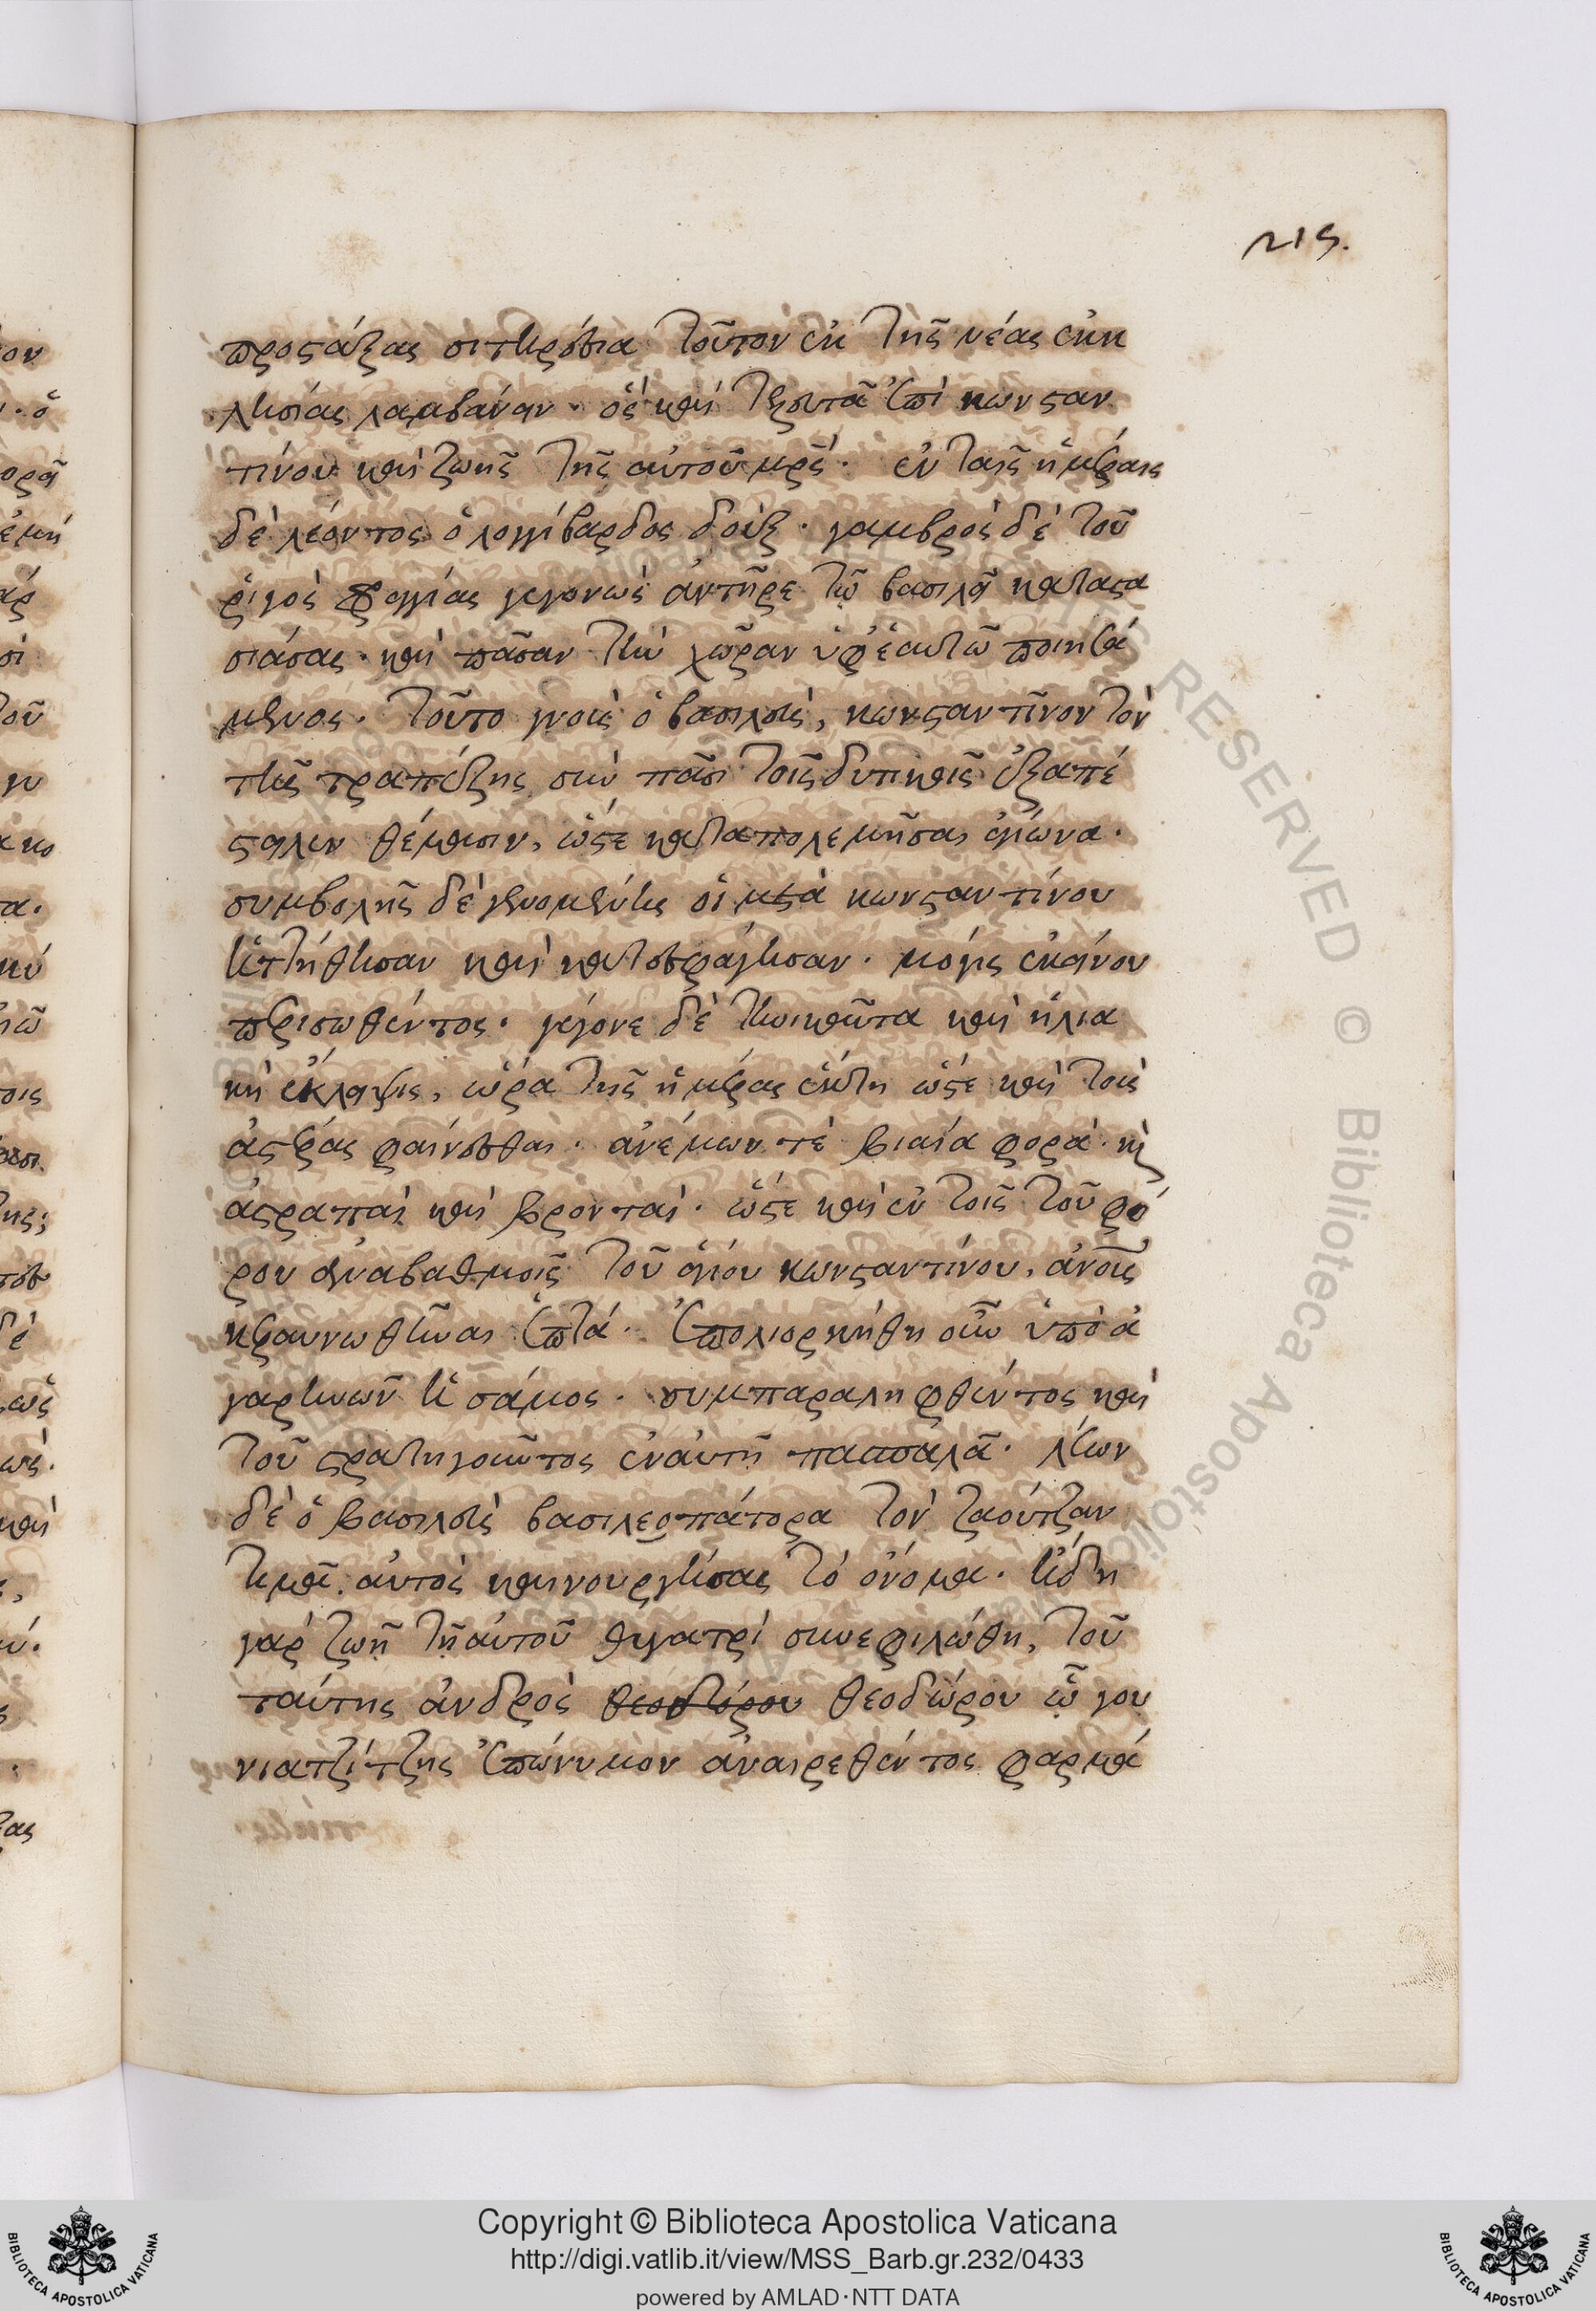 215.
προστάξας σιτηρέσια τοῦτον ἐκ τῆς νέας ἐκκ
λησίας λαμβάνειν. ὃς καὶ τελευτᾶ ἐπὶ κωνσταν
τίνου καὶ ζωῆς τῆς αὐτοῦ μρς. ἐν ταῖς ἡμέραις
δὲ λέοντος ὁ λογγίβαρδος δοὺξ. γαμβρὸς δὲ τοῦ
ῥιγὸς φραγγίας γεγονὼς ἀντῆρε τῷ βασιλεῖ καταστα
σιάσας. καὶ πᾶσαν τὴν χῶραν ὑφ' ἑαυτῷ ποιησά
μενος. τοῦτο γνοὺς ὁ βασιλεὺς, κωνσταντῖνον τὸν
τῆς τραπέζης σὺν πᾶσι τοῖς δυτικοῖς ἐξαπέ
στειλεν θέμασιν, ὥστε καταπολεμῆσαι ἀγίωνα.
συμβολῆς δὲ γενομένης οἱ μετὰ κωνσταντίνου
ἡττήθησαν καὶ κατεσφάγησαν. μόγις ἐκείνου
περισωθέντος. γέγονε δὲ τηνικαῦτα καὶ ἡλια
κὴ ἔκλειψις, ὥρα τῆς ἡμέρας ἕκτη ὥστε καὶ τοὺς
ἀστέρας φαίνεσθαι. ἀνέμων τὲ βιαία φορὰ. καὶ
ἀστραπαὶ καὶ βρονταὶ. ὥστε καὶ ἐν τοῖς τοῦ φό
ρου ἀναβαθμοῖς τοῦ ἁγίου κωνσταντίνου, ἀνους
κεραυνωθῆναι ἑπτά. ἐπολιορκήθη οὖν ὑπὸ ἀ
γαρηνῶν ἡ σάμος. συμπαραληφθέντος καὶ
τοῦ στρατηγοῦντος ἐν αὐτῇ πασπαλᾶ. λέων
δὲ ὁ βασιλεὺς βασιλεοπάτορα τὸν ζαούτζαν
τιμᾶ. αὐτὸς καινουργήσας τὸ ὄνομα. ἤδη
γὰρ ζωῇ τῇ αὐτοῦ θυγατρί συνεφιλιώθη, τοῦ
ταύτης ἀνδρὸς θεοδώρου θεοδώρου ᾧ γου
νιατζίτζης ἐπώνυμον ἀναιρεθέντος φαρμά
Copyright © Biblioteca Apostolica Vaticana
http://digi.vatlib.it/view/MSS_Barb.gr.232/0433
powered by AMLAD·NTT DATA